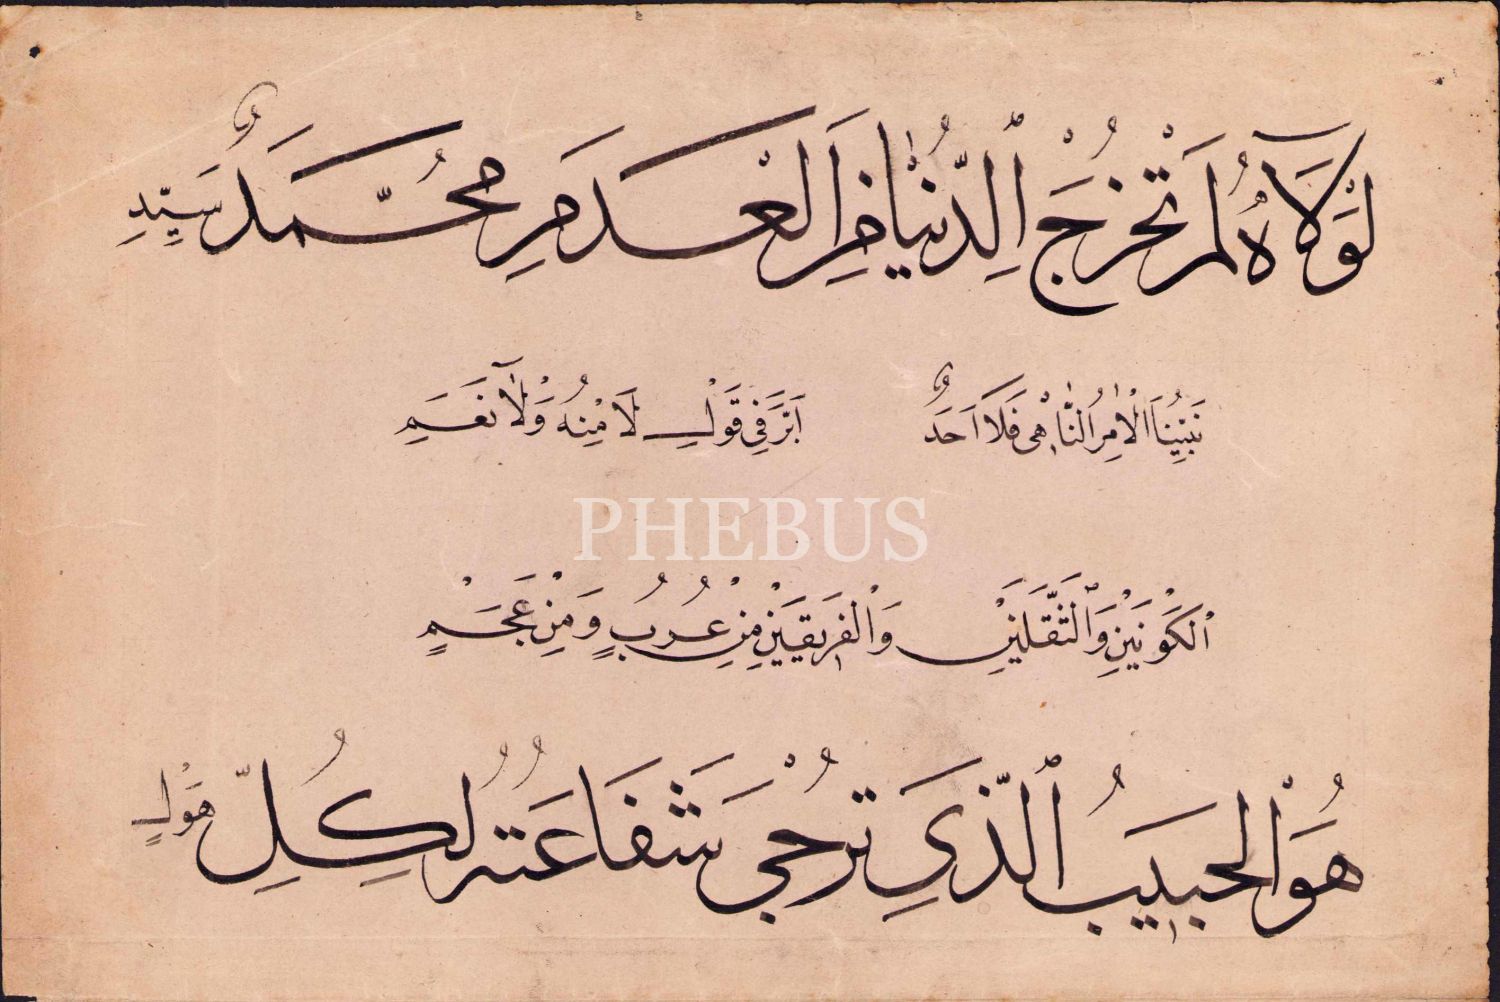 لَوْلَاهُ لَمْ تَخْرُجَ الدُّنْيَا مِنَ الْعَدَمِ مُحَمَّدٌ سَيِّدِ
نَبِيُّنَا الْاٰمِرُ النَّاهِى فَلَا اَحَدٌ اَبَرَّ فِى قَوْلِ لَا مِنْهُ وَلَا نَعَمِ
PHEBUS
الْكَوْنَيْنِ وَالثَّقَلَيْنِ وَالْفَرِيقَيْنِ مِنْ عُرُبٍ وَمِنْ عَجَمٍ
هُوَ الْحَبِيبُ الَّذِى تُرْجَى شَفَاعَتُهُ لِكُلِّ هَوْلٍ